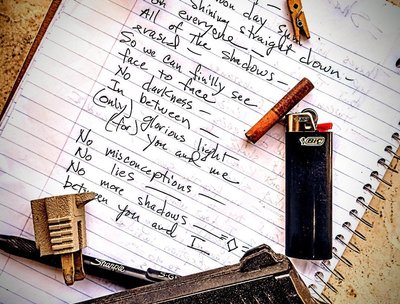 noon day sun
shining straight down
on everyone —
All of the shadows —
erased —
So we can finally see
face to face
No darkness —
In between —
(only) glorious light
(for) you and me
No misconceptions —
No lies —
No more shadows —
between you and I —
BIC
Sharpie S·Gel